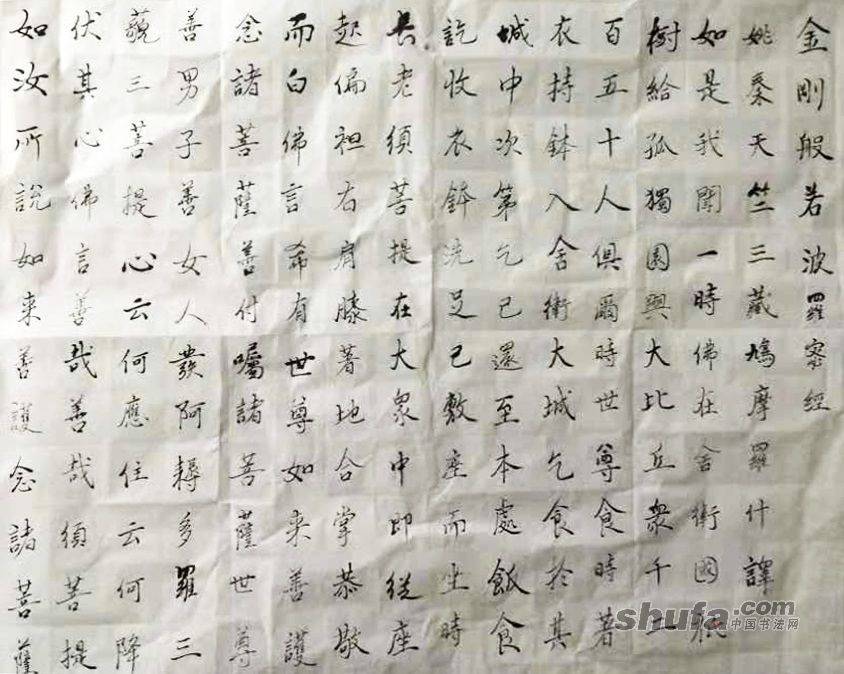 金剛般若波羅蜜經
姚秦天竺三藏鳩摩羅什譯
如是我聞一時佛在舍衛國祇
樹給孤獨園與大比丘衆千二
百五十人俱爾時世尊食時著
衣持鉢入舍衛大城乞食於其
城中次第乞已還至本處飯食
訖收衣鉢洗足已敷座而坐時
長老須菩提在大眾中即從座
起偏袒右肩膝著地合掌恭敬
而白佛言希有世尊如来善護
念諸菩薩善付囑諸菩薩世尊
善男子善女人發阿耨多羅三
藐三菩提心云何應住云何降
伏其心佛言善哉善哉須菩提
如汝所說如来善護念諸菩薩
shufa.com
中国书法网